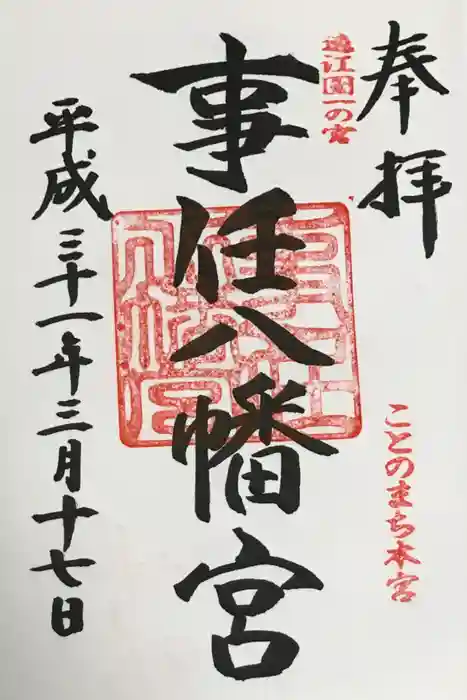 奉拝
遠江国一の宮
事任八幡宮
ことのまち本宮
平成三十一年三月十七日